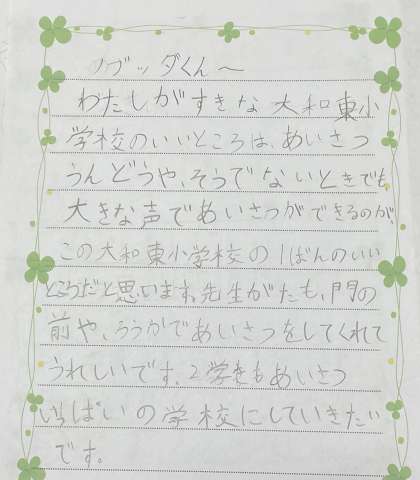 ノブッダくんへ
わたしがすきな大和東小
学校のいいところは、あいさつ
うんどうや、そうでないときでも、
大きな声であいさつができるのが、
この大和東小学校の1ばんのいい
ところだと思います。先生がたも、門の
前や、ろうかであいさつをしてくれて
うれしいです。2学きもあいさつ
いっぱいの学校にしていきたい
です。